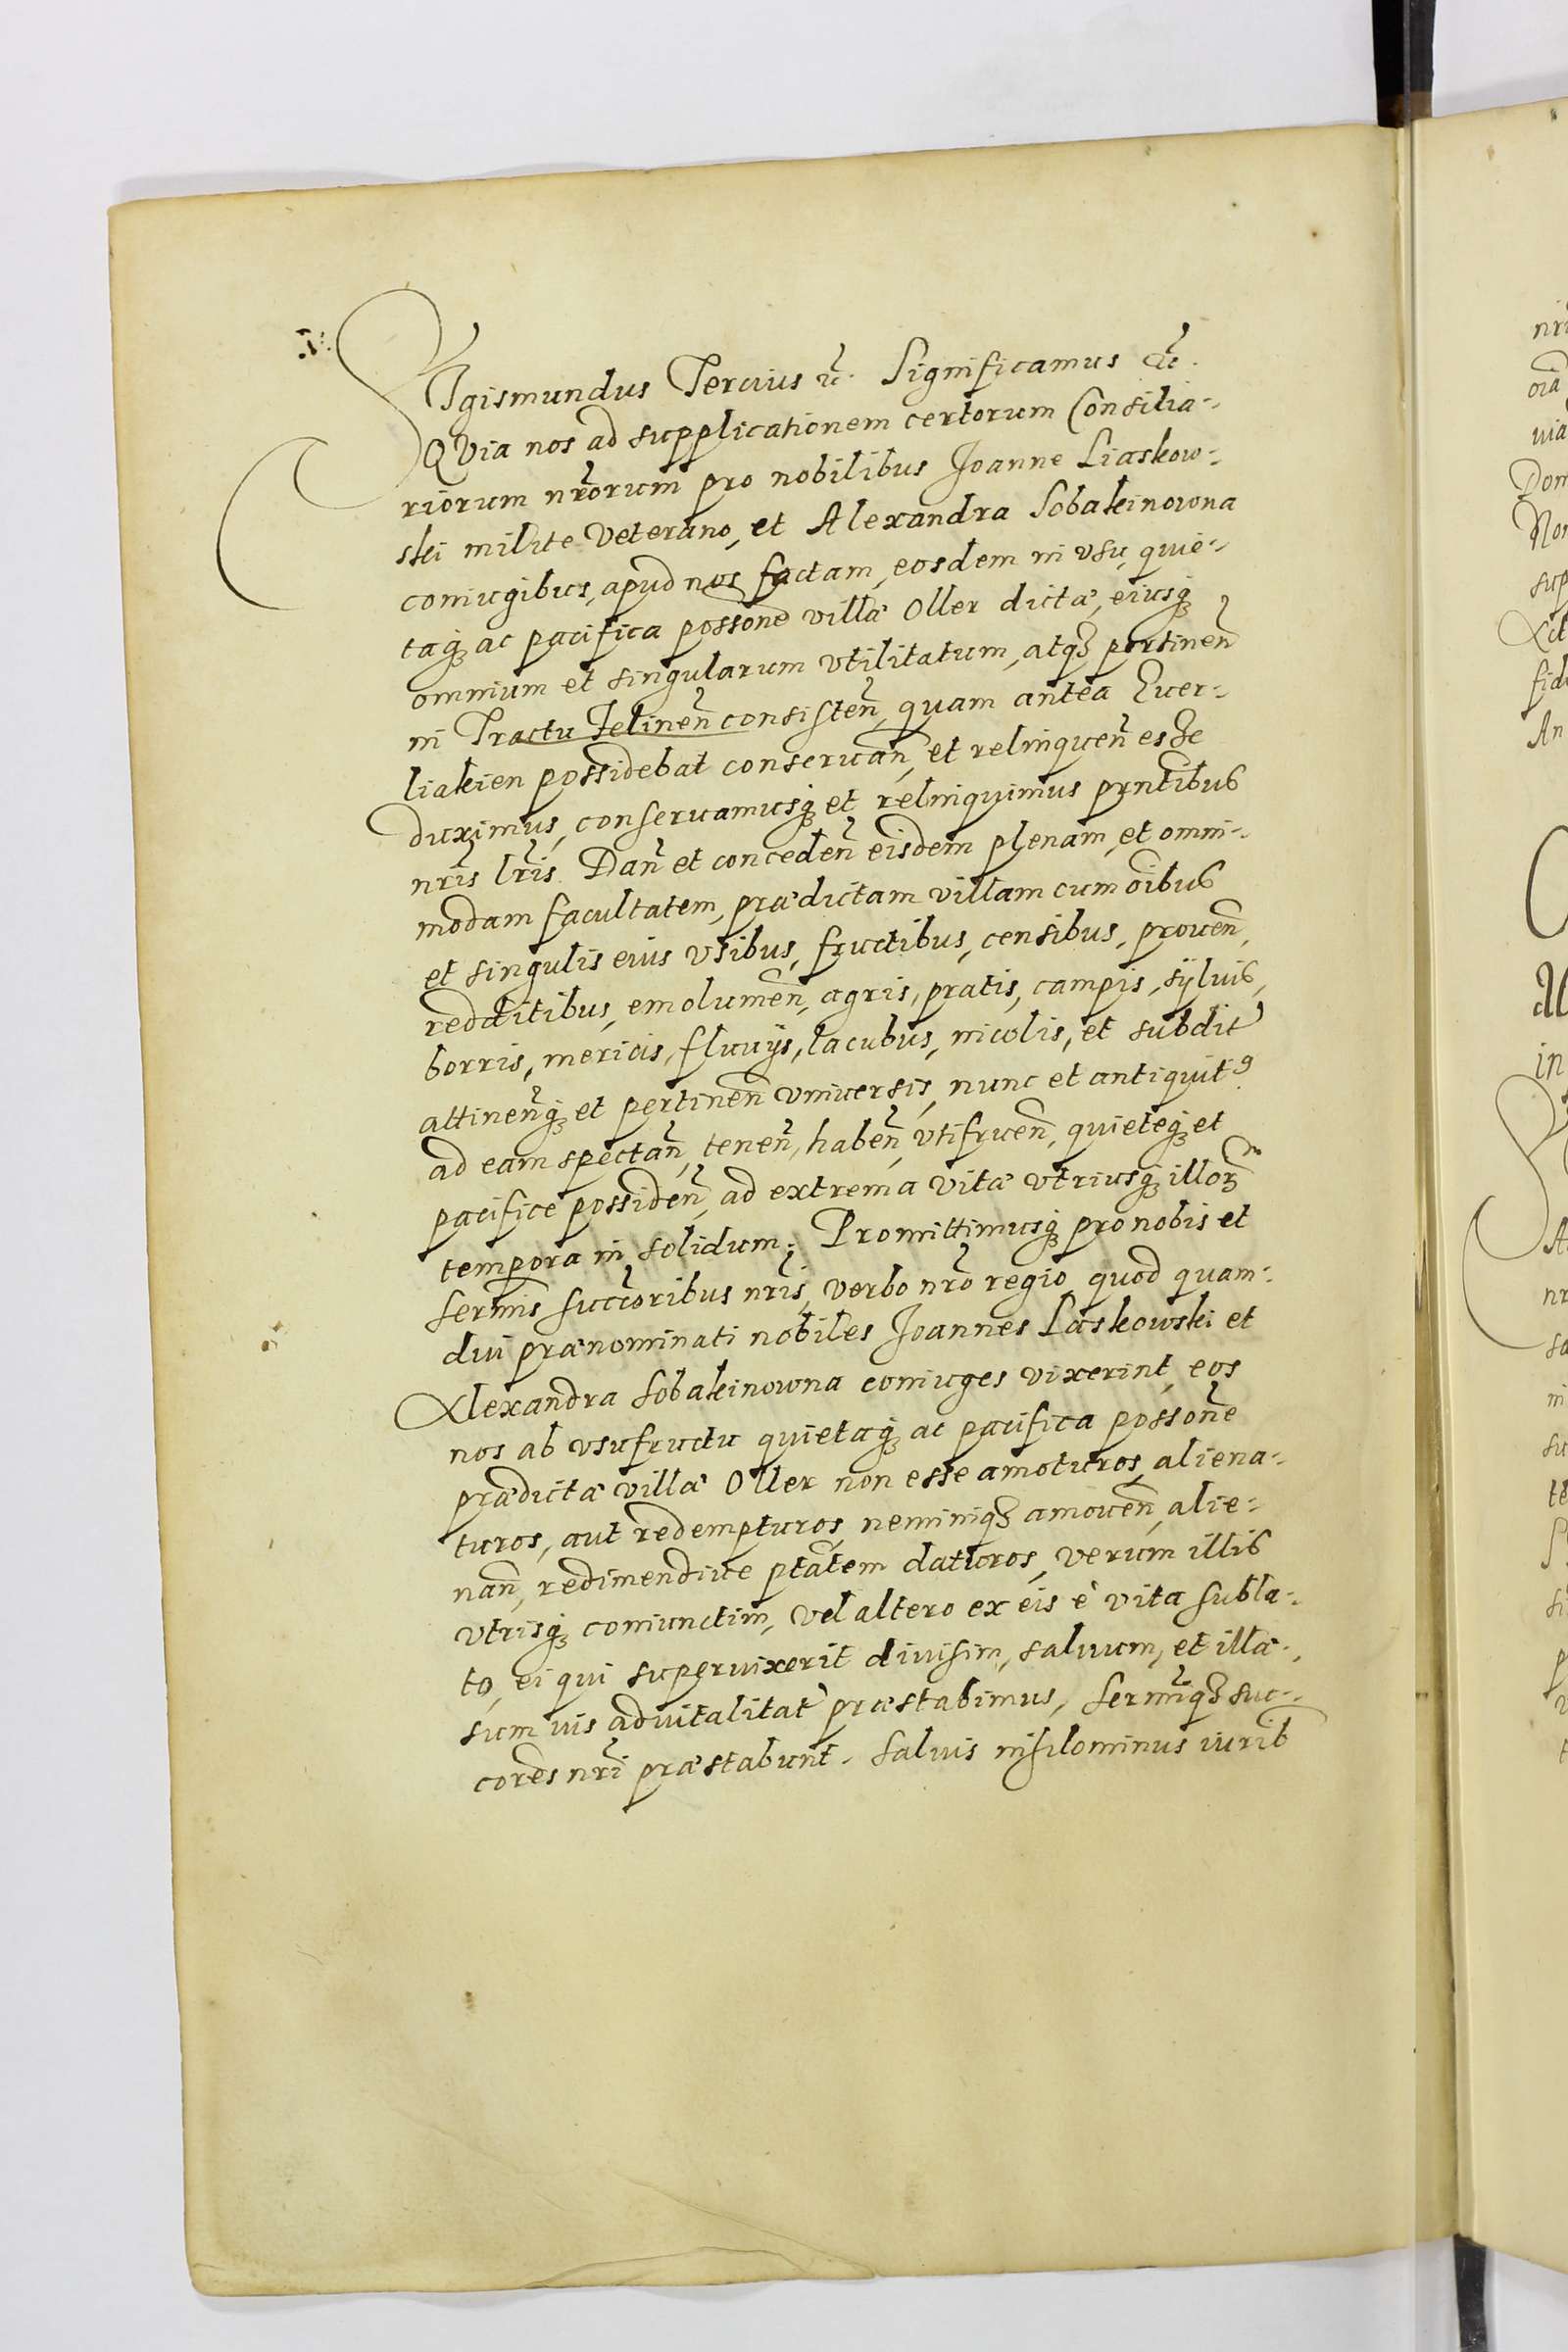 SIgismundus Tercius etc. Significamus etc.
QVia nos ad supplicationem certorum Consilia-
riorum nrorum pro nobilibus Joanne Liaskow-
ski milite Veterano, et Alexandra Sobakinowna
coniugibus, apud nos factam, eosdem in vsu, quie-
taq3 ac pacifica possone villæ Oller dictæ, eiusq3
omnium et singularum vtilitatum, atq3 pertinen
in Tractu Felinen consisten, quam antea Euer-
liakien possidebat conseruan, et relinquen esse
duximus, conseruamusq3 et relinquimus pntibus
nris lris. Dan et conceden eisdem plenam, et omni-
modam facultatem, prædictam villam cum oibus
et singulis eius vsibus, fructibus, censibus, prouen,
redditibus, emolumen, agris, pratis, campis, sÿluis,
borris, mericis, fluuijs, lacubus, incolis, et subdit
attinenq3 et pertinen vniuersis, nunc et antiquit9
ad eam spectan, tenen, haben, vtifruen, quieteq3 et
pacifice possiden, ad extrema vitæ vtriusq3 illor
tempora in solidum. Promittimusq3 pro nobis et
Sermis succoribus nris, verbo nro regio quod quam-
diu prænominati nobiles Joannes Laskowski et
Alexandra Sobakinowna coniuges vixerint, eos
nos ab vsufructu quietaq3 ac pacifica possone
prædictæ villæ Oller non esse amoturos, aliena-
turos, aut redempturos, neminiq3 amouen, alie-
nan, redimendiue ptatem daturos, verum illis
vtrisq3 coniunctim, vel altero ex eis è vita subla-
to, ei qui superuixerit diuisim, saluum, et illæ-
sum ius aduitalitat præstabimus, Sermiq3 suc-
cores nri præstabunt. Saluis nihilominus iurib
nri
oia
uia
Dom
Non
sup
An
in